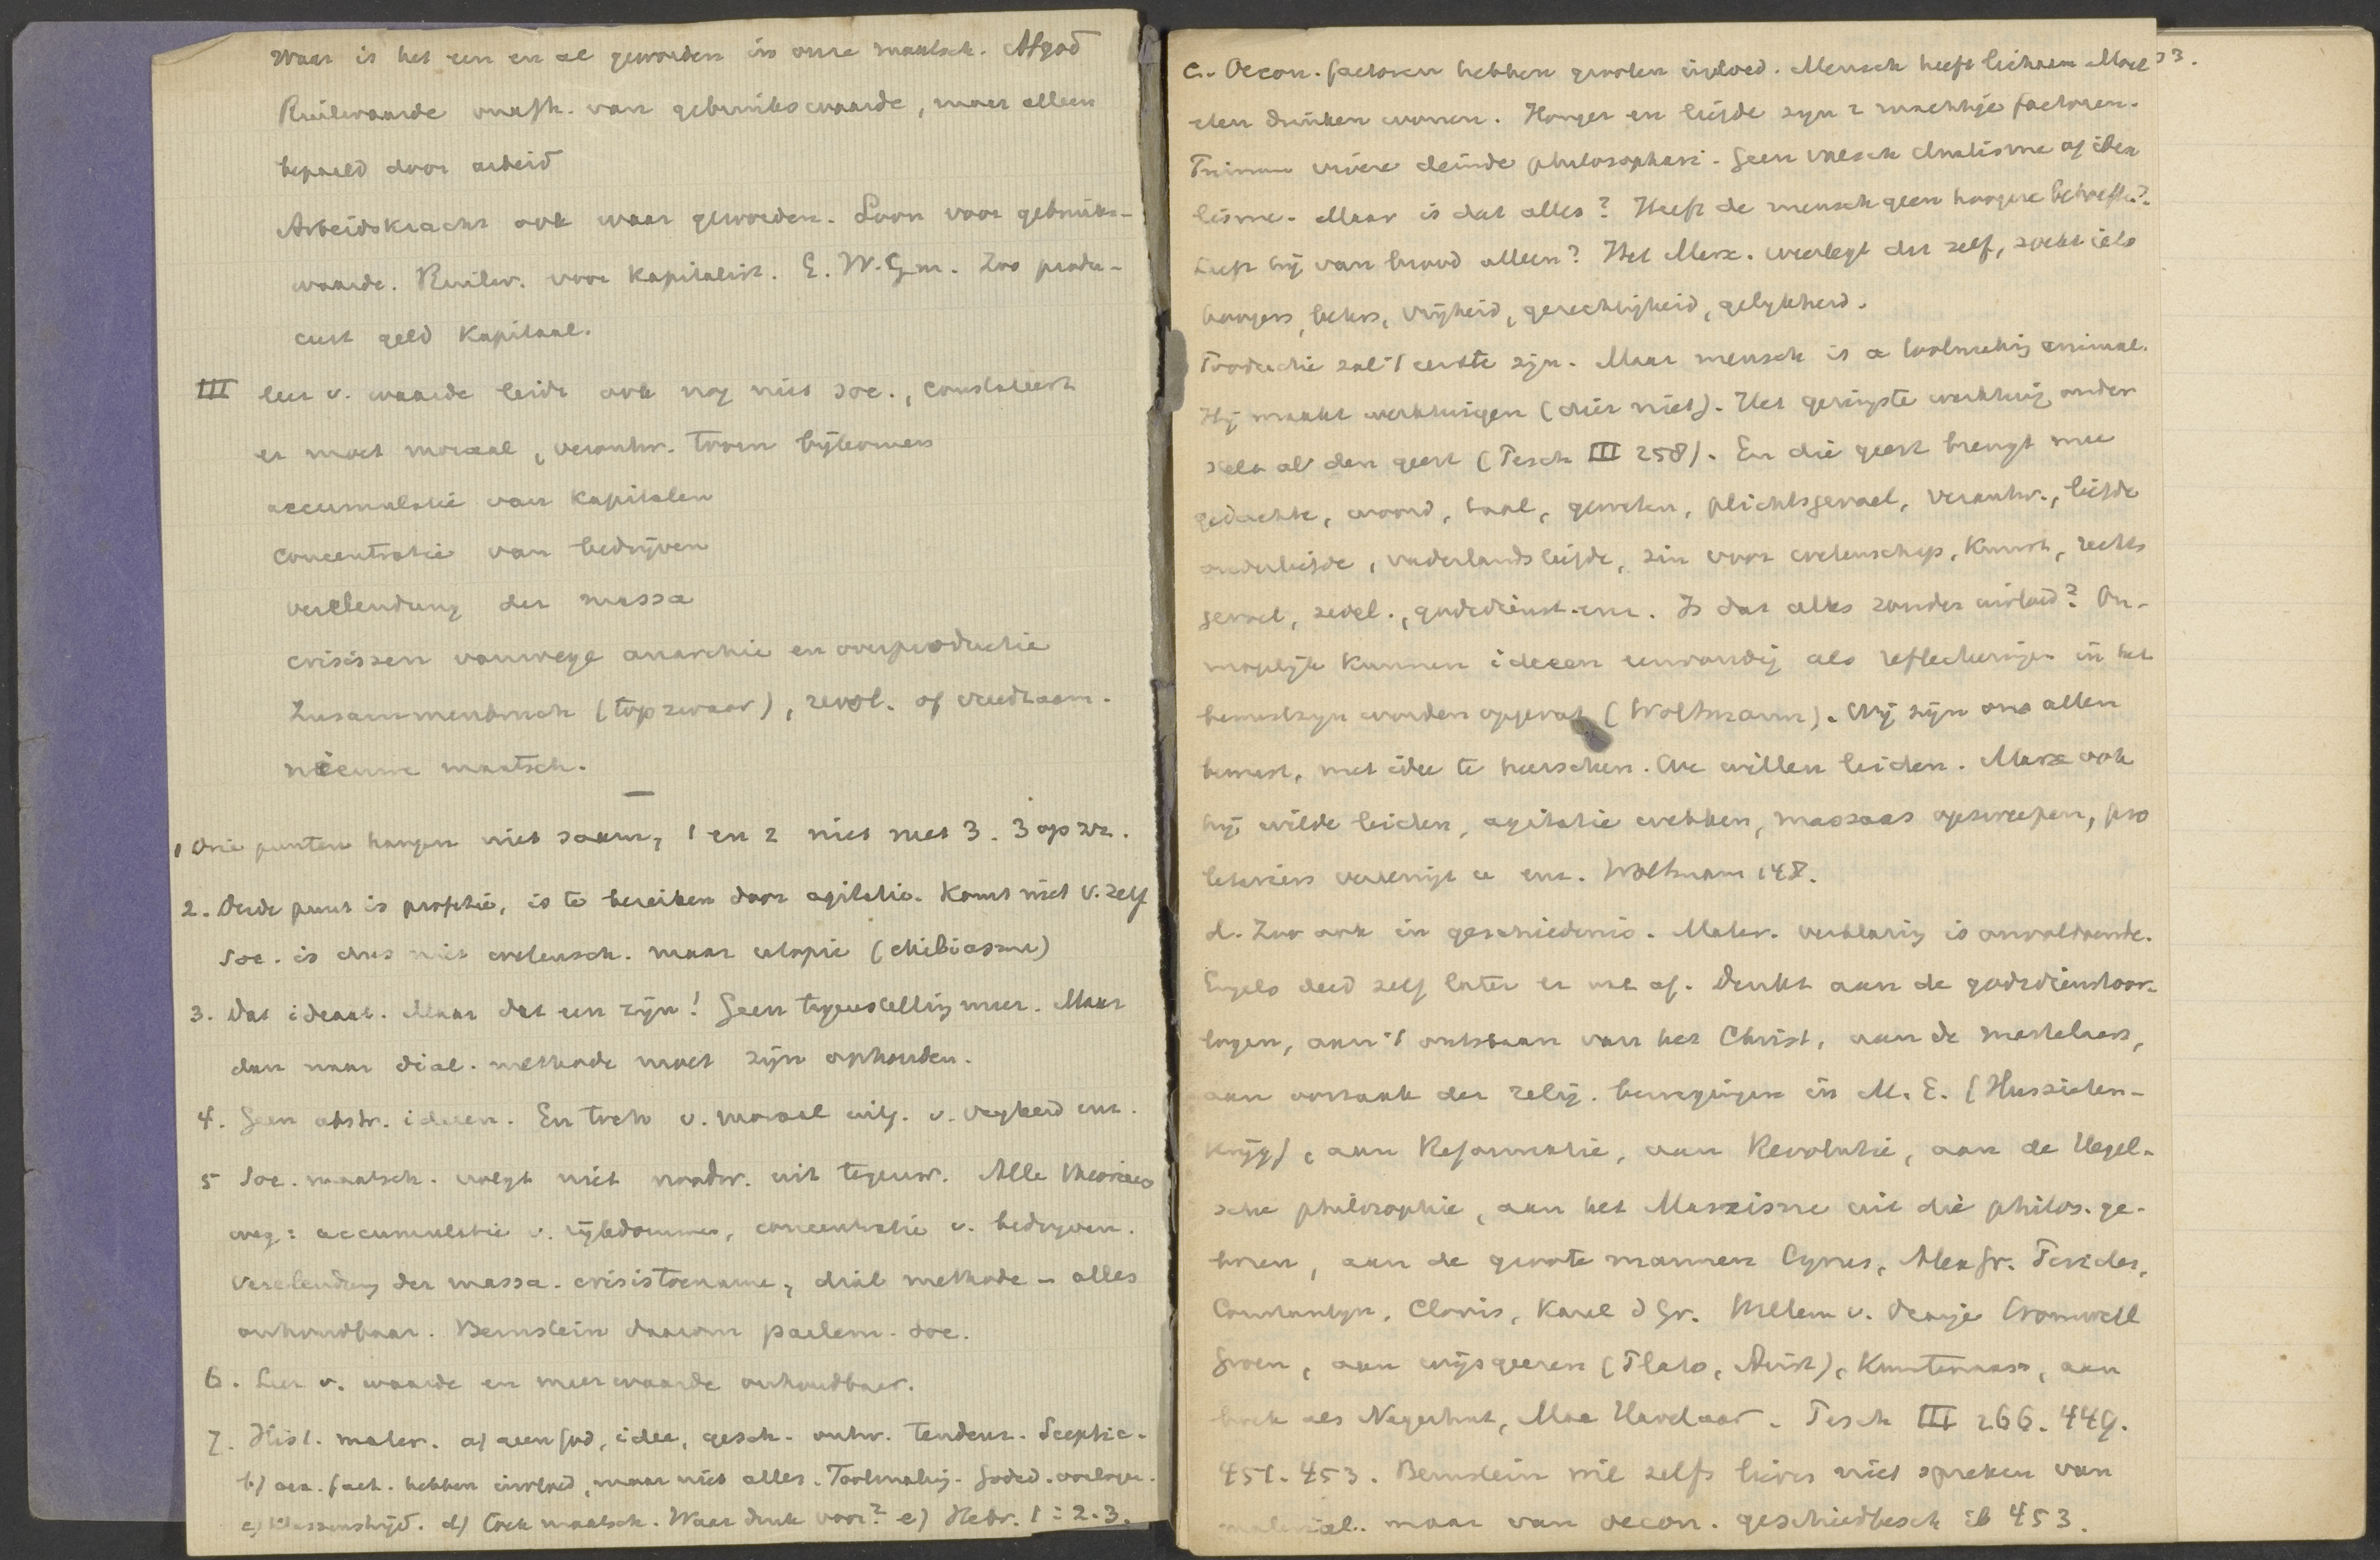 Waar is het een en al geworden in onze maatsch. Afgod
Ruilwaarde onafh. van gebruikswaarde, maar alleen
bepaald door arbeid
Arbeidskracht ook waar geworden. Loon voor gebruiks-
waarde. Ruilw. voor Kapitalist. G. W. G. m. Zoo produ-
ceert geld Kapitaal.
III leer v. waarde leidt ook nog niet soc., constateert
er moet moraal, verontw. toorn bijkomen
accumulatie van Kapitalen
concentratie van bedrijven
verelendung der massa
crisissen vanwege anarchie en overproductie
Zusammenbruch (topzwaar), revol. of vreedzaam.
nieuwe maatsch.
1 Drie punten hangen niet saam, 1 en 2 niet met 3. 3 op zz.
2. Derde punt is profetie, is te bereiken door agitatie. Komt niet v. zelf
Soc. is dus niet wetensch. maar utopie (chiliasme)
3. Dat ideaal. Maar dat een zijn! Geen tegenstelling meer. Maar
dan naar dial. methode moet zijn ophouden.
4. Geen abstr. ideeen. En toch v. moraal uitg. v. vryheid enz.
5 Soc. maatsch. volgt niet noodw. uit tegenw. Alle theorieen
weg: accumulatie v. rijkdommen, concentratie v. bedryven.
Verelendung der massa. crisistoename, dial methode - alles
onhoudbaar. Bernstein daarom parlem. soc.
6. Leer v. waarde en meerwaarde onhoudbaar.
7. Hist. mater. a) geen God, idee, gesch. ontw. tendenz. Sceptic.
b) oec. fact. hebben invloed, maar niet alles. Toolmaking. Godsd. oorlogen.
c) Klassenstrijd. d) toek maatsch. Waar denk voor? e) Hebr. 1: 2. 3.
33.
c. Oecon. factoren hebben grooten invloed. Mensch heeft lichaam Moet
eten drinken wonen. Honger en liefde zyn 2 machtige factoren.
Primum vivere deinde philosophari. Geen valsch dualisme of idea
lisme. Maar is dat alles? Heeft de mensch geen hoogere behoeften?
Leeft hij van brood alleen? Het Marx. weerlegt dit zelf, zoekt iets
hoogers, beters, vrijheid, gerechtigheid, gelykheid.
Productie zal 't eerste zijn. Maar mensch is a toolmaking animal.
Hij maakt werktuigen (dier niet). Het geringste werktuig onder
stelt al den geest (Pesch III 258). En die geest brengt mee
gedachte, woord, taal, geweten, plichtsgevoel, verantw., liefde
ouderliefde, vaderlandsliefde, zin voor wetenschap, Kunst, rechts
gevoel, zedel., godsdienst enz. Is dat alles zonder invloed? On-
mogelijk Kunnen ideeen eenvoudig als reflecteringen in het
bewustzyn worden opgevat (Woltmann). Wij zijn ons allen
bewust, met idee te heerschen. We willen leiden. Marx ook
hij wilde leiden, agitatie wekken, massaas opzweepen, pro
letariers vereenigt u enz. Woltmann 148.
d. Zoo ook in geschiedenis. Mater. verklaring is onvoldoende.
Engels deed zelf later er wat af. Denkt aan de godsdienstoor-
logen, aan 't ontstaan van het Christ, aan de martelaars,
aan oorzaak der relig. bewegingen in M. E. (Hussieten-
krijg), aan Reformatie, aan Revolutie, aan de Hegel-
sche philosophie, aan het Marxisme uit die philos. ge-
boren, aan de groote mannen Cyrus, Alex Gr. Pericles,
Constantyn, Clovis, Karel d Gr. Willem v. Oranje Cromwell
Groen, aan wijsgeeren (Plato, Arist), Kunstenaars, aan
boek als Negerhut, Max Havelaar. Pesch III 266. 449.
451. 453. Bernstein wil zelfs liever niet spreken van
material. maar van oecon. geschiedbesch ib 453.